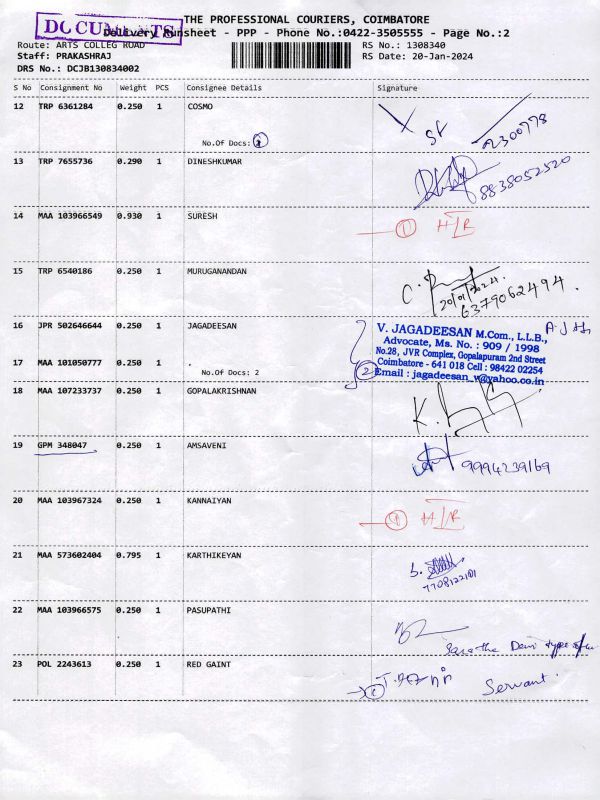 DOCUMENTS
THE PROFESSIONAL COURIERS, COIMBATORE
Delivery Runsheet - PPP - Phone No.:0422-3505555 - Page No.:2
Route: ARTS COLLEG ROAD RS No.: 1308340
Staff: PRAKASHRAJ RS Date: 20-Jan-2024
DRS No.: DCJB130834002
S No Consignment No Weight PCS Consignee Details Signature
12 TRP 6361284 0.250 1 COSMO
No.Of Docs:
13 TRP 7655736 0.290 1 DINESHKUMAR
8838052520
14 MAA 103966549 0.930 1 SURESH
1 H/R
15 TRP 6540186 0.250 1 MURUGANANDAN
20/01/2024.
6379062494.
16 JPR 502646644 0.250 1 JAGADEESAN
V. JAGADEESAN M.Com., L.L.B.,
Advocate, Ms. No. : 909 / 1998
No.28, JVR Complex, Gopalapuram 2nd Street
Coimbatore - 641 018 Cell : 98422 02254
Email : jagadeesan_v@yahoo.co.in
17 MAA 101050777 0.250 1 .
No.Of Docs: 2
2
18 MAA 107233737 0.250 1 GOPALAKRISHNAN
19 GPM 348047 0.250 1 AMSAVENI
9994239169
20 MAA 103967324 0.250 1 KANNAIYAN
1 H/R
21 MAA 573602404 0.795 1 KARTHIKEYAN
7708122101
22 MAA 103966575 0.250 1 PASUPATHI
23 POL 2243613 0.250 1 RED GAINT
Servant.